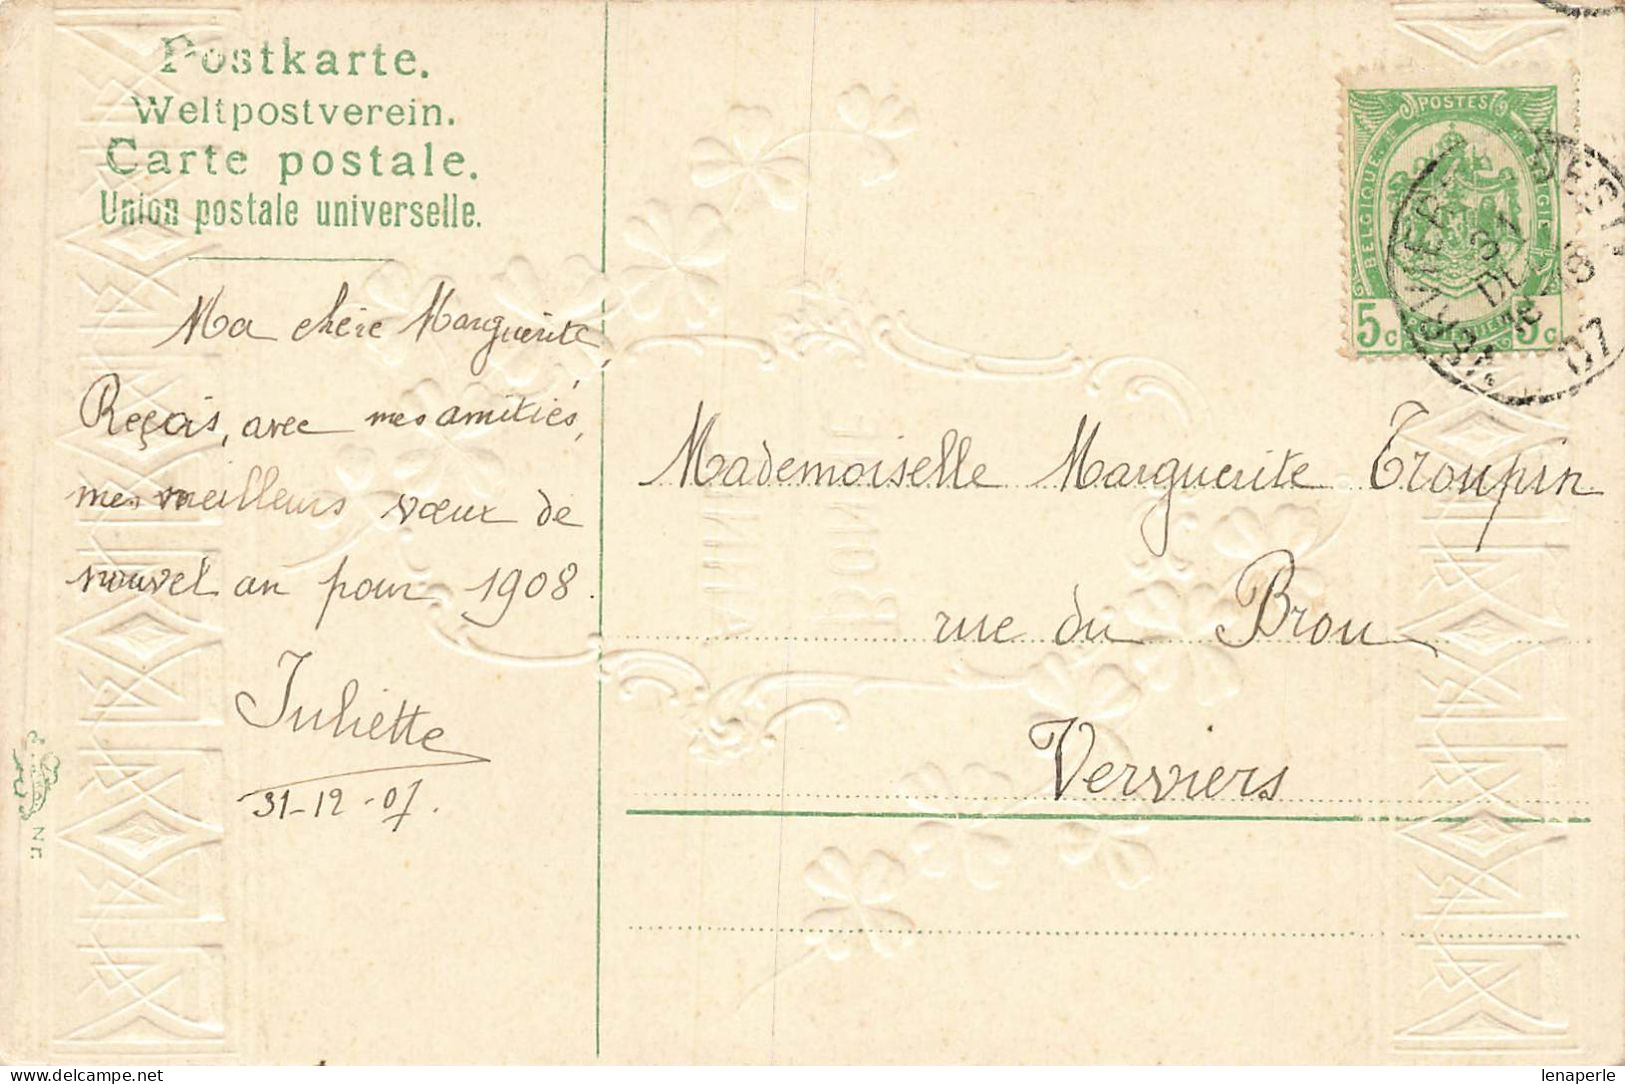 Postkarte.
Weltpostverein.
Carte postale.
Union postale universelle.
Ma chère Marguerite,
Reçois, avec mes amitiés,
mes meilleurs vœux de
nouvel an pour 1908.
Juliette
31-12-07.
Nr.
POSTES
BELGIQUE
5c 5c
31
DEC
07
Mademoiselle Marguerite Troupin
rue du Brou
Verviers
lenaperle